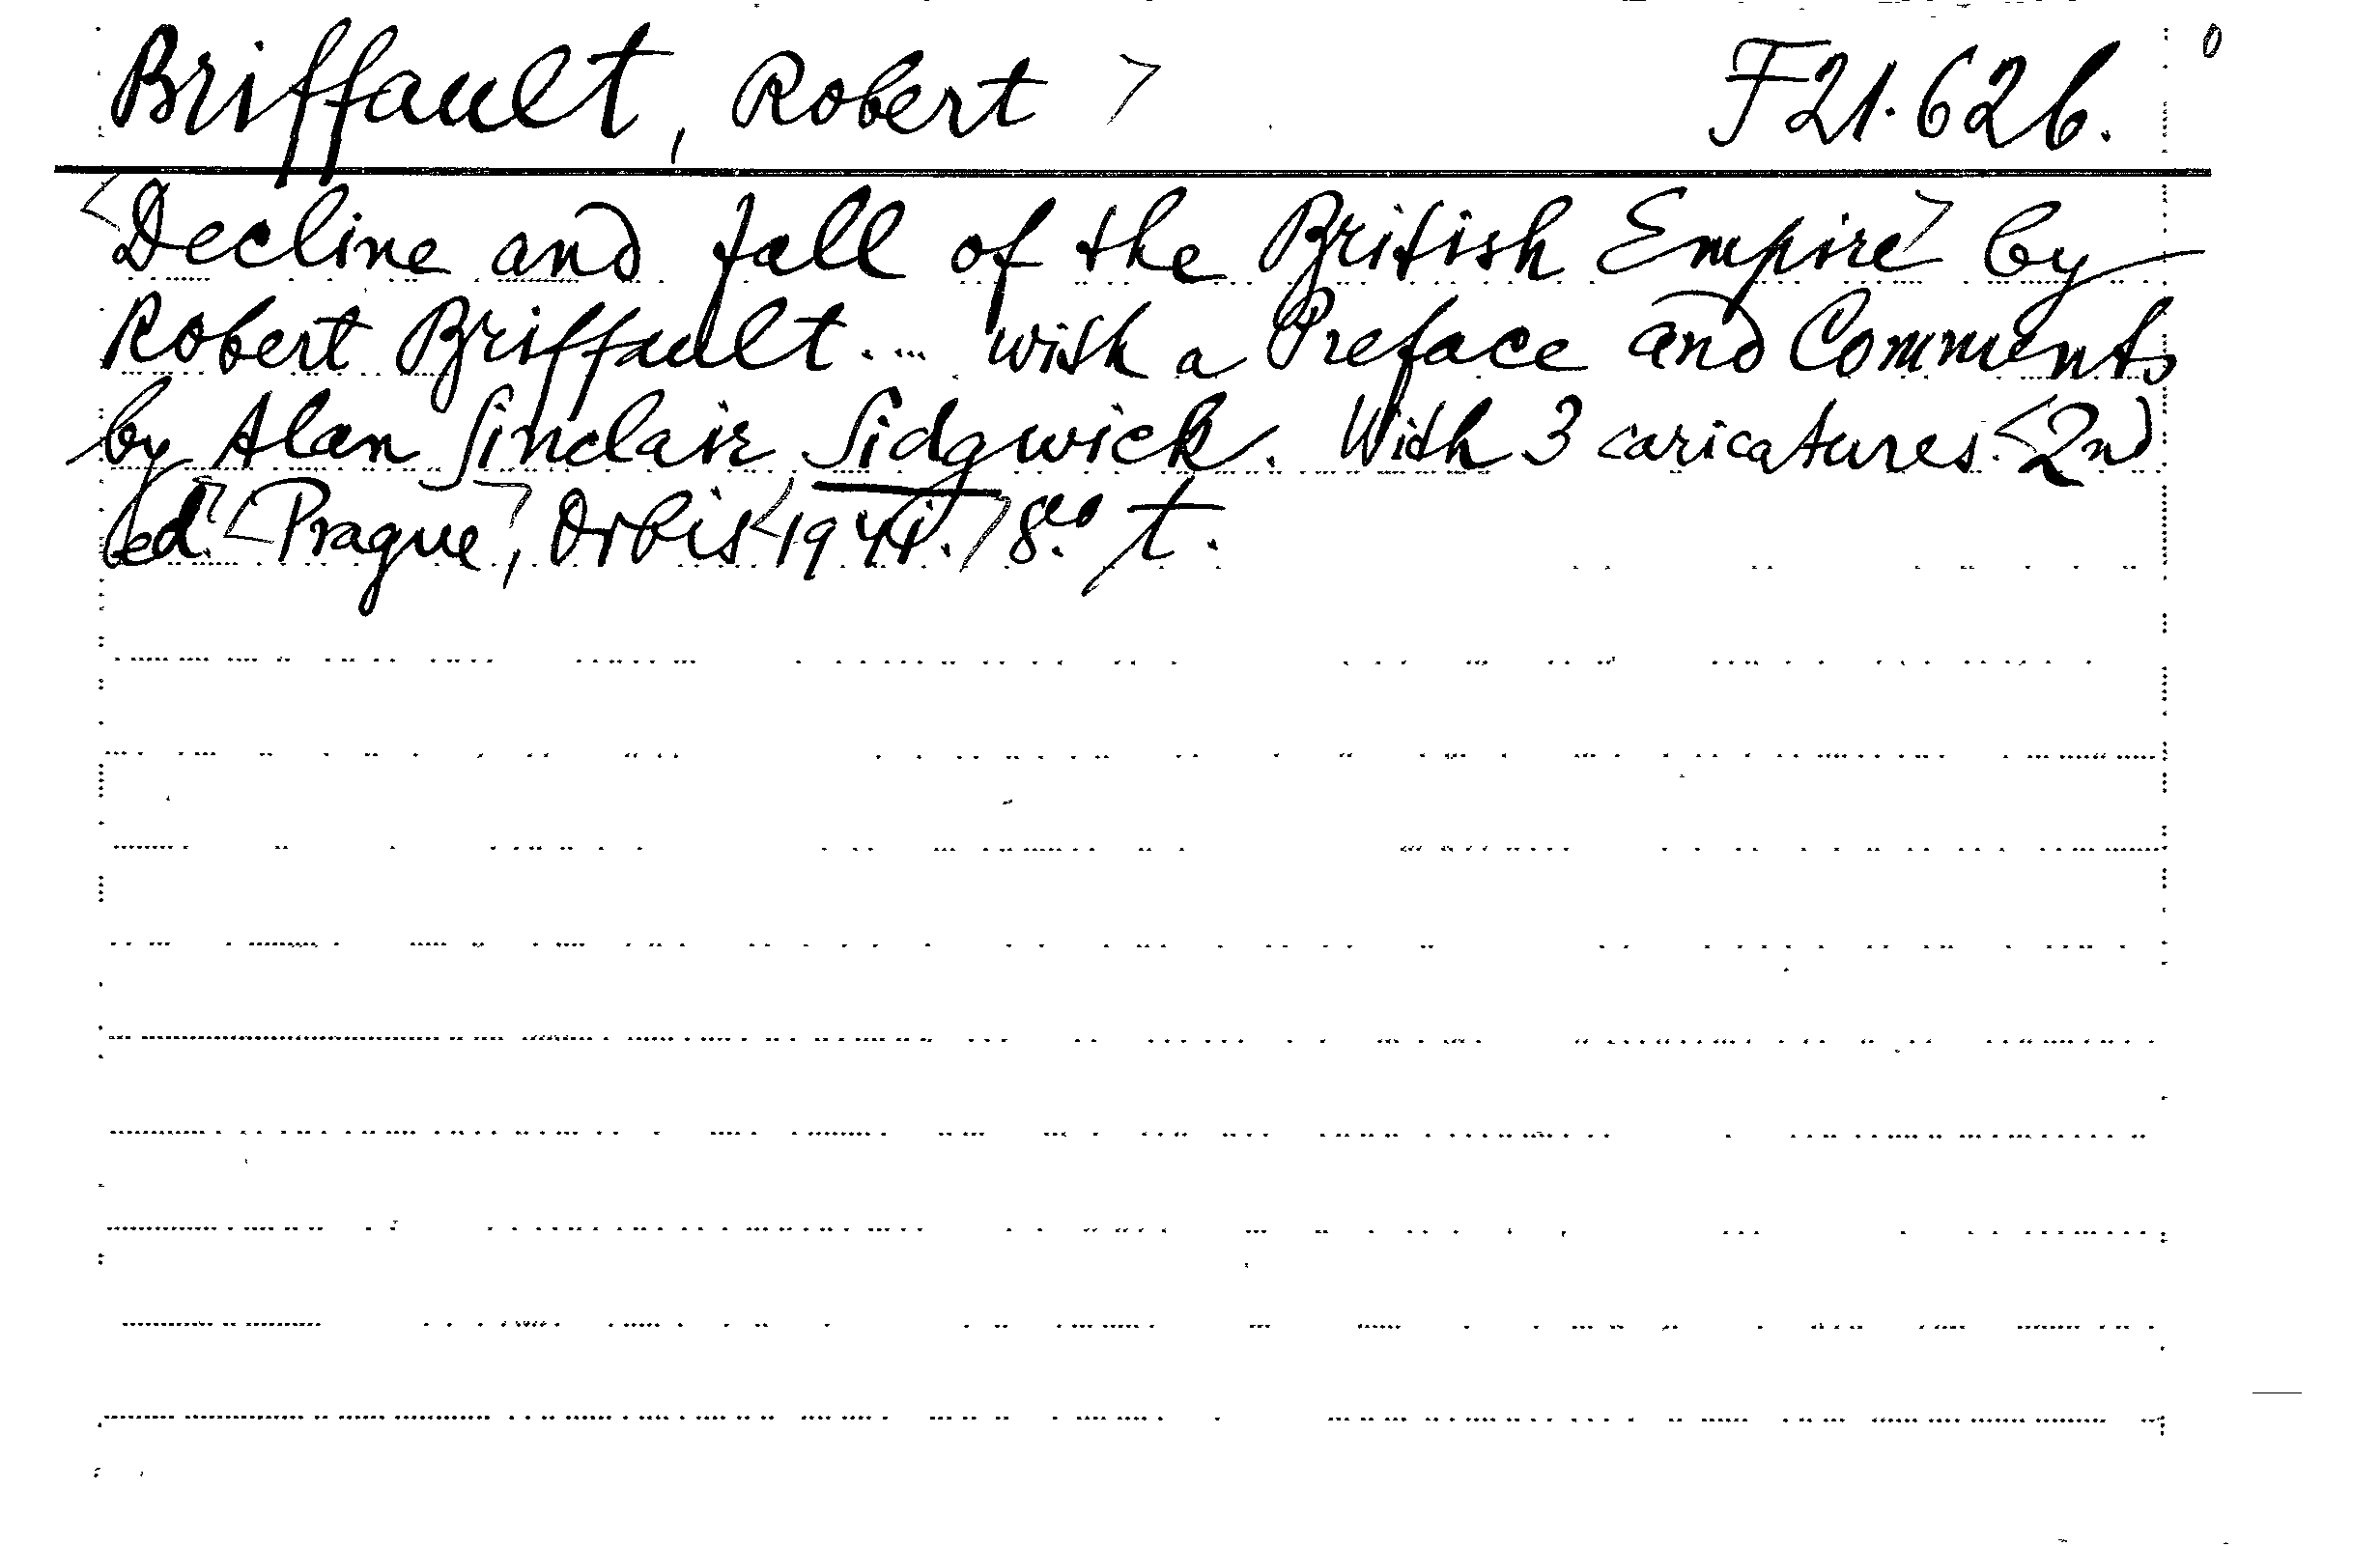 Briffault, Robert > F21.626.
<Decline and fall of the British Empire> by
Robert Briffault.... with a Preface and Comments
by Alan Sinclair Sidgwick. With 3 caricatures. <2nd
ed.> <Prague>, Orbis <1941.> 8.º t.